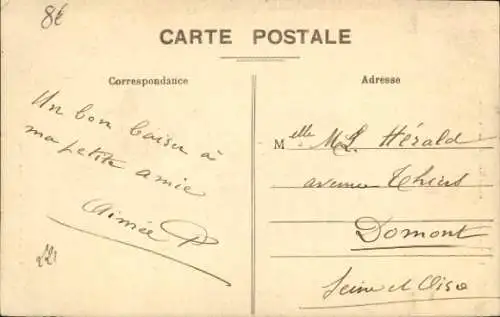 8€
CARTE POSTALE
Correspondance
Adresse
Un bon baiser à
ma petite amie
Aimée P
Melle ML. Hérald
avenue Thiers
Domont
Seine et Oise